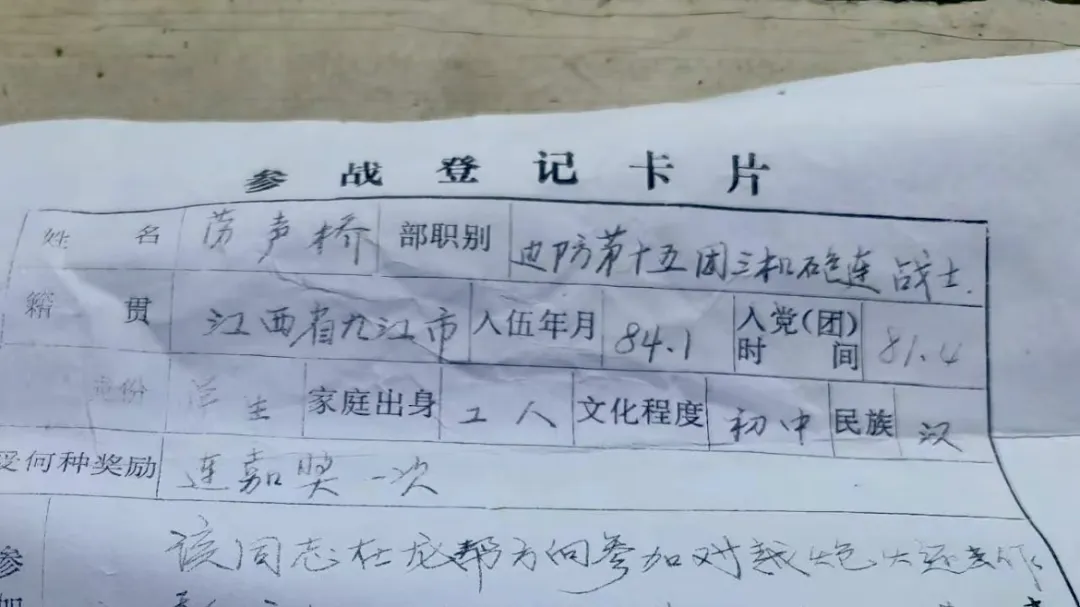 参战登记卡片
姓名 声桥 部职别 边防第十五团三机炮连 战士.
籍贯 江西省九江市 入伍年月 84.1 入党(团)时间 81.4
身份 学生 家庭出身 工人 文化程度 初中 民族 汉
受何种奖励 连嘉奖一次
参加 该同志在龙邦方向参加对越炮火还击作